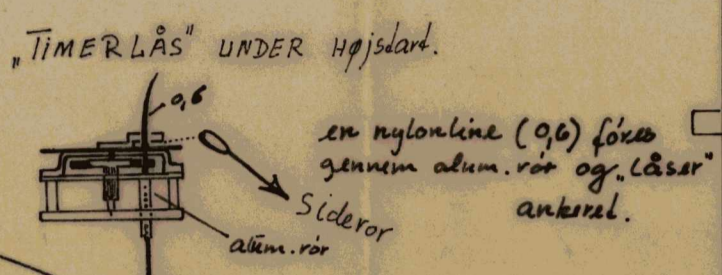 „TIMERLÅS" UNDER Højstart.
0,6
en nylonline (0,6) föres
gennem alum. rör og „låser"
ankeret.
Sideror
alum. rör